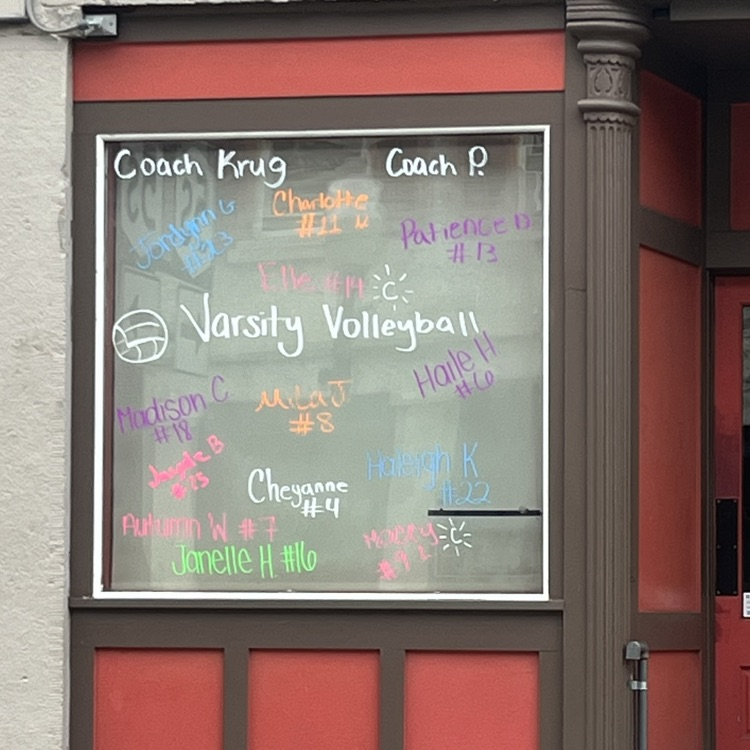 Coach Krug
Coach P.
Jordynn G
#23
Charlotte
#11 M
Patience D
#13
#14
C
Varsity Volleyball
Madison C
#18
Mila J
#8
Haile H
#6
B
Cheyanne
#4
Haleigh K
#22
Autumn W #7
Janelle H #16
C